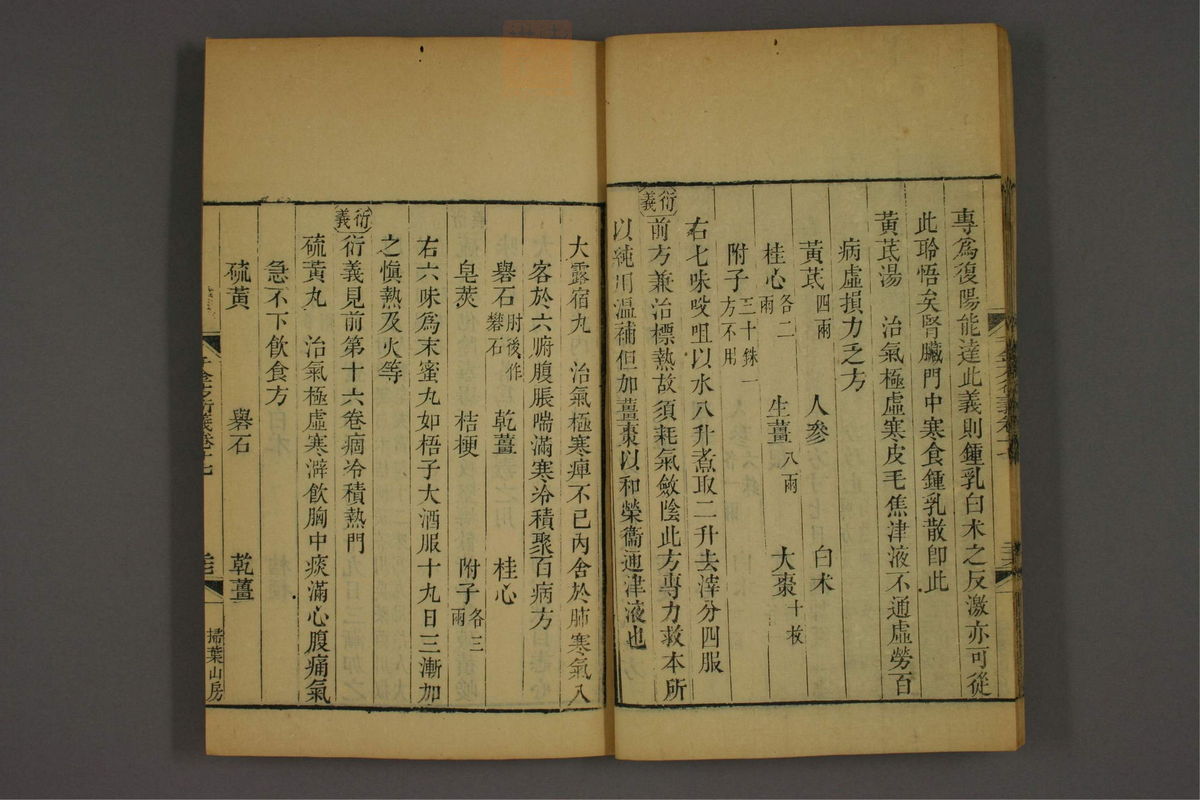 專爲復陽能達此義則鍾乳白术之反激亦可從
此聆悟矣腎臟門中寒食鍾乳散卽此
黃茋湯　治氣極虛寒皮毛焦津液不通虛勞百
病虛損力乏方
黃茋四兩　人參　白术
桂心各二兩　生薑八兩　大棗十枚
附子三十銖一方不用
右七味㕮咀以水八升煮取二升去滓分四服
衍義　前方兼治標熱故須耗氣斂陰此方專力救本所
以純用温補但加薑棗以和榮衞通津液也
大露宿丸　治氣極寒痺不已內舍於肺寒氣入
客於六腑腹脹喘滿寒冷積聚百病方
礜石肘後作礬石　乾薑　桂心
皂莢　桔梗　附子各三兩
右六味爲末蜜丸如梧子大酒服十丸日三漸加
之愼熱及火等
衍義　衍義見前第十六卷痼冷積熱門
硫黃丸　治氣極虛寒澼飲胸中痰滿心腹痛氣
急不下飲食方
硫黃　礜石　乾薑
千金方衍義卷十七　三七　掃葉山房